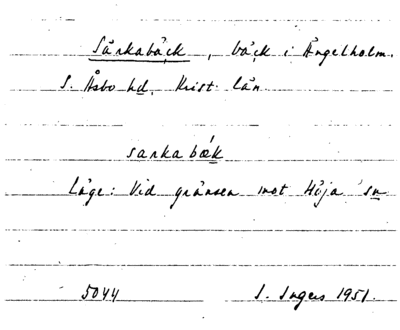 Särkabäck, bäck i Ängelholm.
S. Åsbo hd. Krist. län
sarkabæk
Läge: Vid gränsen mot Höja sn
5044 I. Ingers 1951.